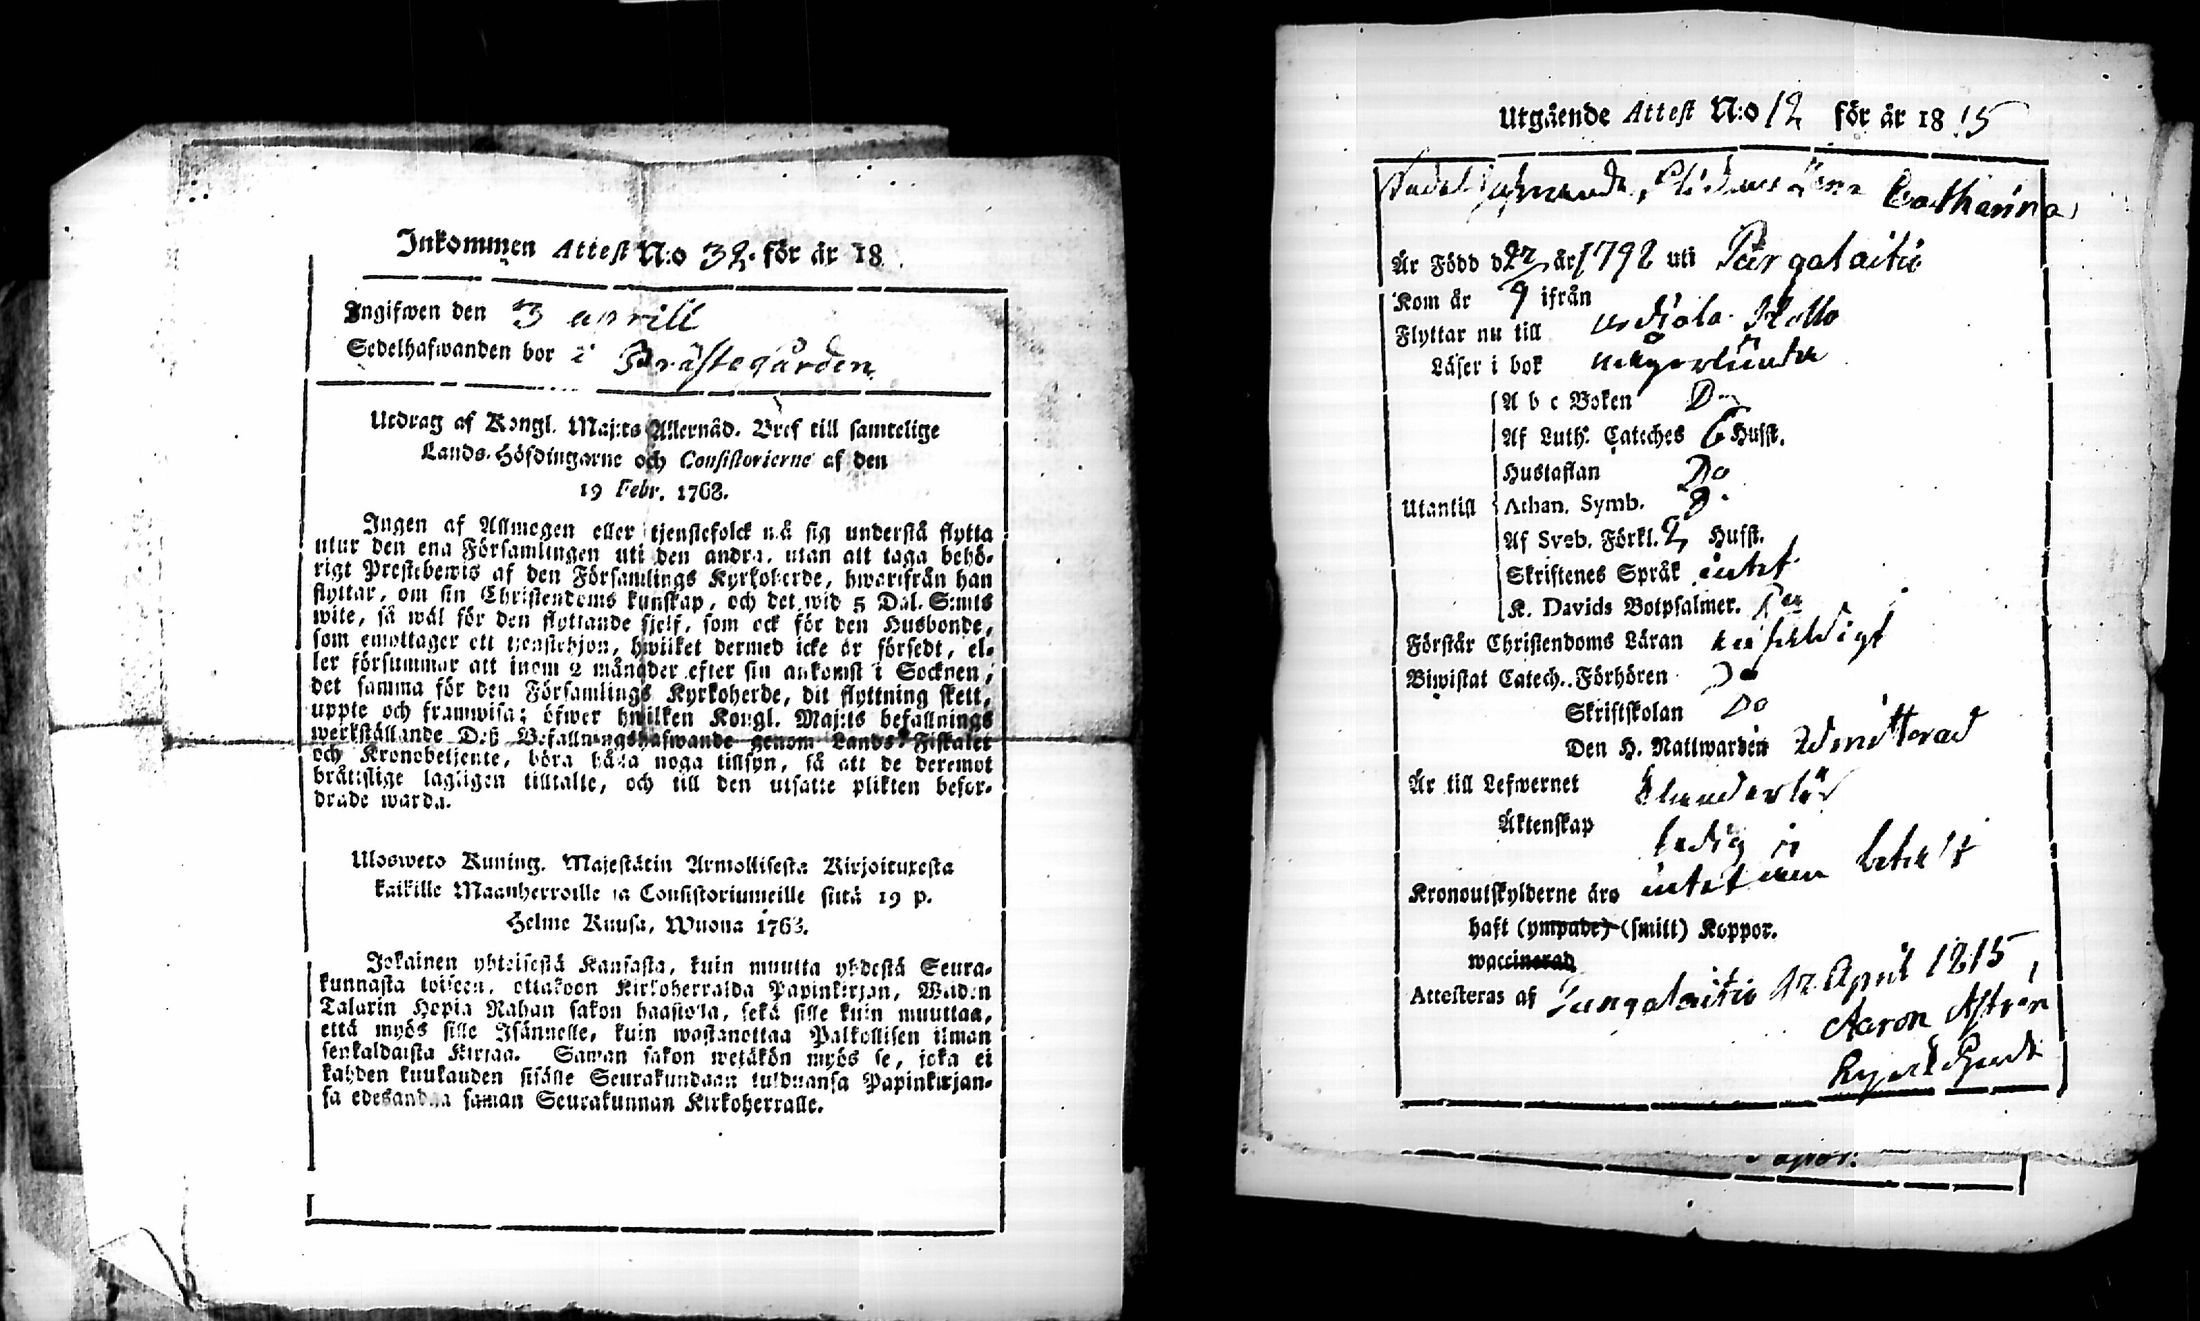 Inkommen Attest N:o 32. för år 18
Ingifwen den 3 aprill
Sedelhafwanden bor i Prästegården
Utdrag af Kongl. Maj:ts Allernåd. Bref till samtelige
Lands-Höfdingarne och Consistorierne af den
19 Febr. 1768.
Ingen af Allmogen eller tjenstefolck må sig understå flytta
utur den ena Församlingen uti den andra, utan att taga behö-
rigt Prestebewis af den Församlings Kyrkoherde, hwarifrån han
flyttar, om sin Christendoms kunskap, och det wid 5 Dal. S:mts
wite, så wäl för den flyttande sjelf, som ock för den Husbonde,
som emottager ett tjenstehjon, hwilket dermed icke är försedt, el-
ler försummar att inom 2 månader efter sin ankomst i Socknen,
det samma för den Församlings Kyrkoherde, dit flyttning skett,
uppte och framwisa; öfwer hwilken Kongl. Maj:ts befallnings
werkställande Deß Befallningshafwande genom Lands-Fiskaler
och Kronobetjente, böra hålla noga tillsyn, så att de deremot
bråttslige lagligen tilltalte, och till den utsatte plikten befor-
drade warda.
Ulosweto Kuning. Majestätin Armollisesta Kirjoituxesta
kaikille Maanherroille ja Consistoriumeille siitä 19 p.
Helme Kuusa, Wuona 1763.
Jokainen yhteisestä Kansasta, kuin muutta yhdestä Seura-
kunnasta toiseen, ottakoon Kirkoherralda Papinkirjan, Wiiden
Talarin Hopia Rahan sakon haastolla, sekä sille kuin muuttaa,
että myös sille Isännelle, kuin wastanottaa Palkollisen ilman
senkaldaista Kirjaa. Saman sakon wetäkön myös se, joka ei
kahden kuukauden sisälle Seurakundaan tulduansa Papinkirjan-
sa edesandaa saman Seurakunnan Kirkoherralle.
Utgående Attest N:o 12 för år 1815
Catharina
År Född d 27 år 1792 uti
Kom år ifrån
Flyttar nu till
Läser i bok
A b c Boken Do
Af Luth. Cateches 6 Husst.
Hustaflan Do
Utantill Athan. Symb.
Af Sveb. Förkl. 2 Husst.
Skriftenes Språk intet
K. Davids Botpsalmer.
Förstår Christendoms Läran enfaldigt
Biwistat Catech. Förhören Do
Skriftskolan Do
Den H. Nattwarden Admitterad
Är till Lefwernet klanderlös
Äktenskap ledig
Kronoutskylderne äro
haft (ympade) (smitt) Koppor.
waccinerad
Attesteras af April 1815
Aaron